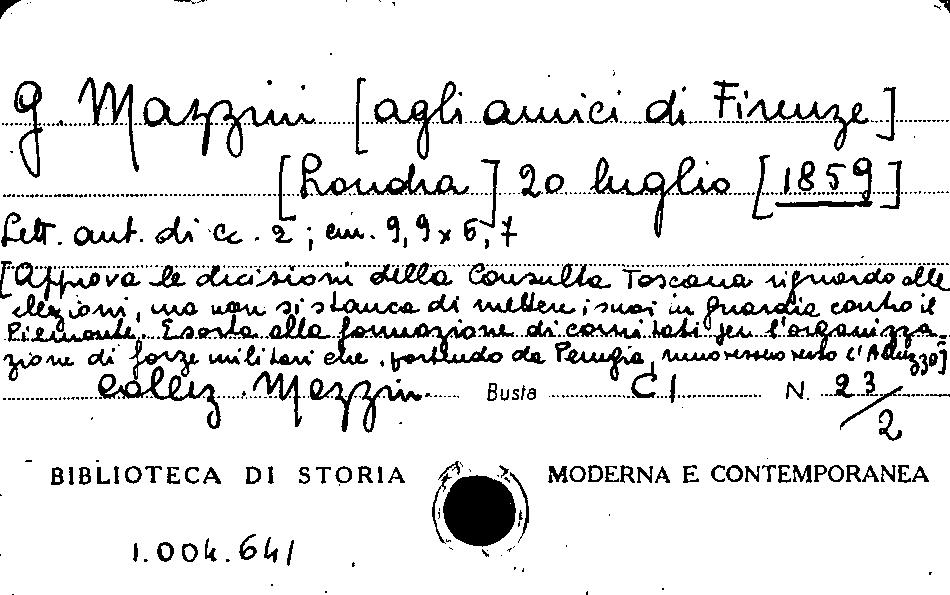 G. Mazzini [agli amici di Firenze]
[Londra] 20 luglio [1859]
Lett. aut. di cc. 2; cm. 9,9 x 6,7
[Approva le decisioni della Consulta Toscana riguardo alle
elezioni, ma non si stanca di mettere i suoi in guardia contro il
Piemonte. Esorta alla formazione di comitati per l'organizza-
zione di forze militari che, partendo da Perugia, muovessero verso l'Abruzzo]
Collez. Mazzini Busta C I N. 23/2
BIBLIOTECA DI STORIA MODERNA E CONTEMPORANEA
1.004.641